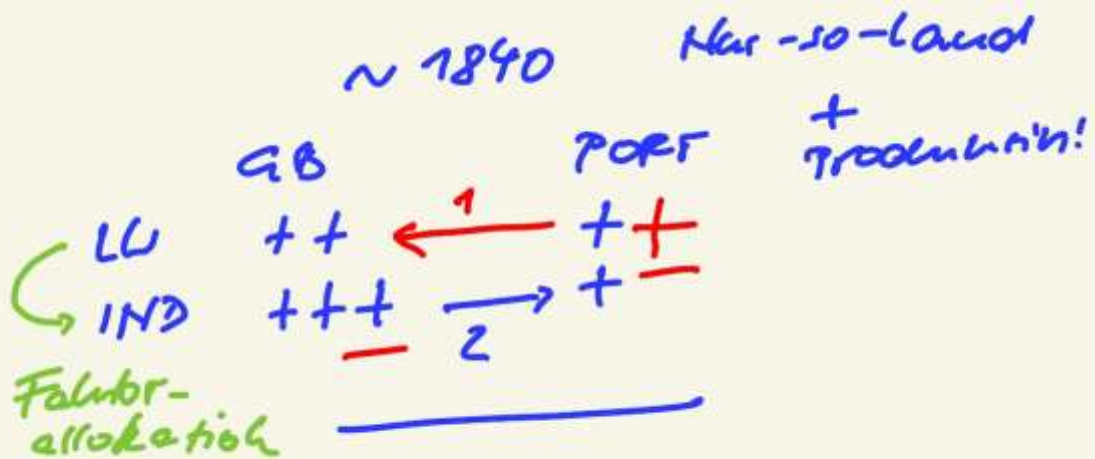 ~ 1840
Nur-so-Land
+
Produktion!
GB PORT
LW ++ 1 ++
IND +++ 2 +
Faktor-
allokation